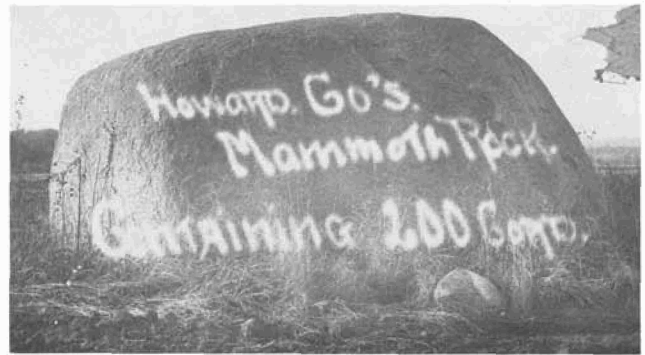 Howard. Co's.
Mammoth Rock.
Containing 200 Cord.